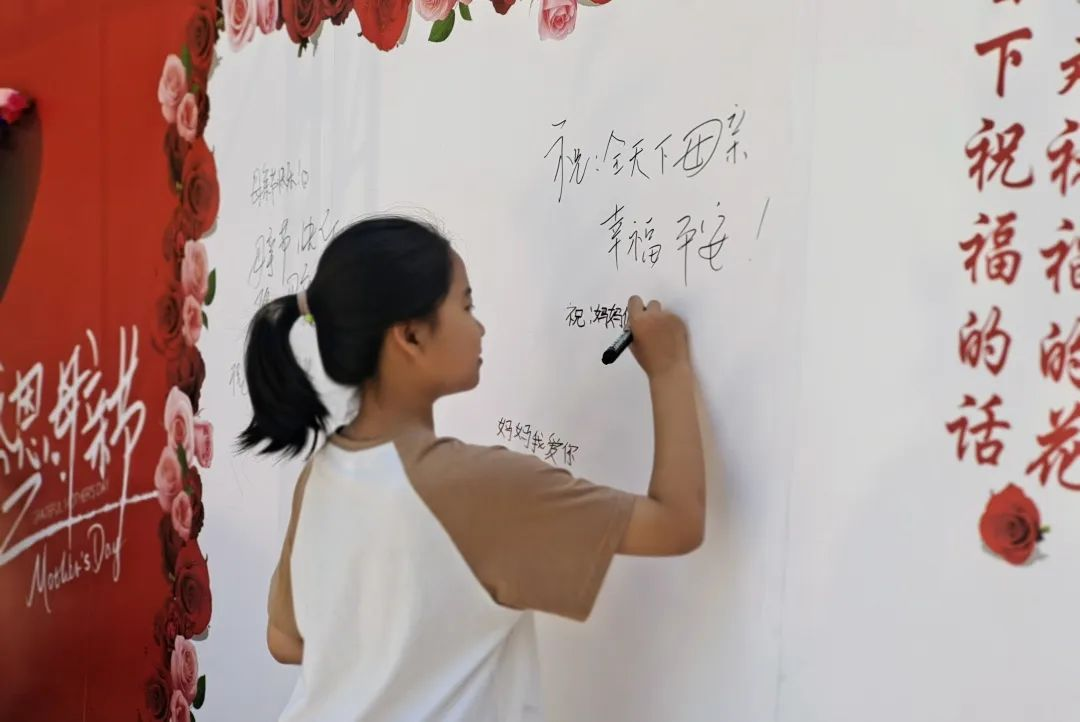 感恩母亲节
GRATEFUL MOTHER'S DAY
Mother's Day
母亲节快乐
母亲节快乐
祝:全天下母亲
幸福平安!
祝:妈妈
妈妈我爱你
下祝福的话
祝福的花